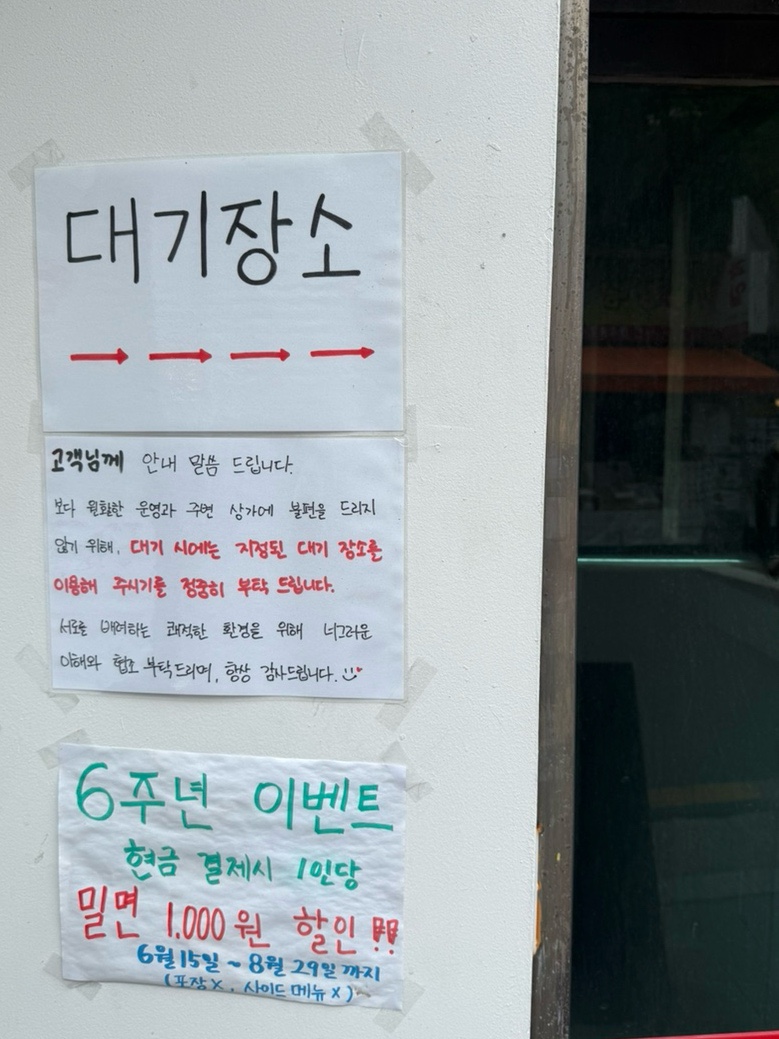 대기장소
→ → → →
고객님께 안내 말씀 드립니다.
보다 원활한 운영과 주변 상가에 불편을 드리지
않기 위해, 대기 시에는 지정된 대기 장소를
이용해 주시기를 정중히 부탁 드립니다.
서로를 배려하는 쾌적한 환경을 위해 너그러운
이해와 협조 부탁드리며, 항상 감사드립니다.
6주년 이벤트
현금 결제시 1인당
밀면 1.000원 할인!!
6월15일~8월29일까지
(포장X, 사이드메뉴X)